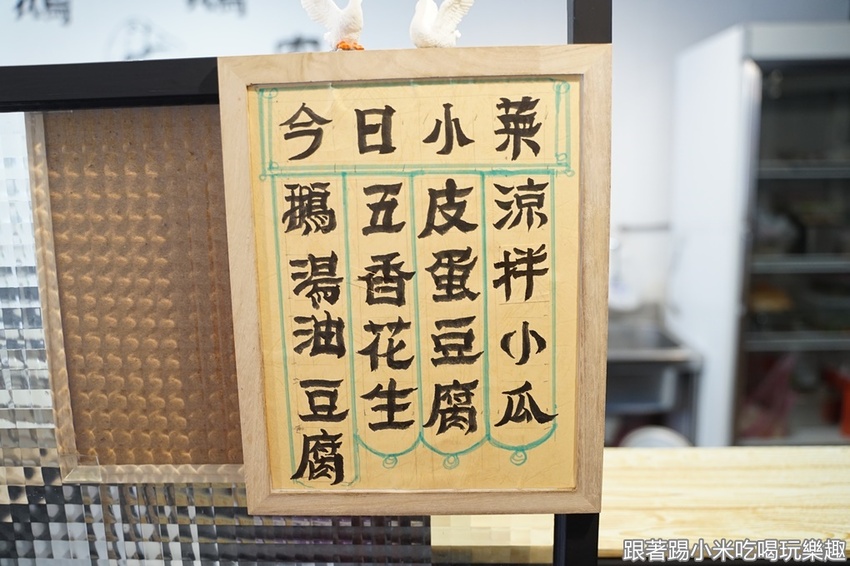 今日小菜
涼拌小瓜
皮蛋豆腐
五香花生
鵝湯油豆腐
鵝
跟著踢小米吃喝玩樂趣